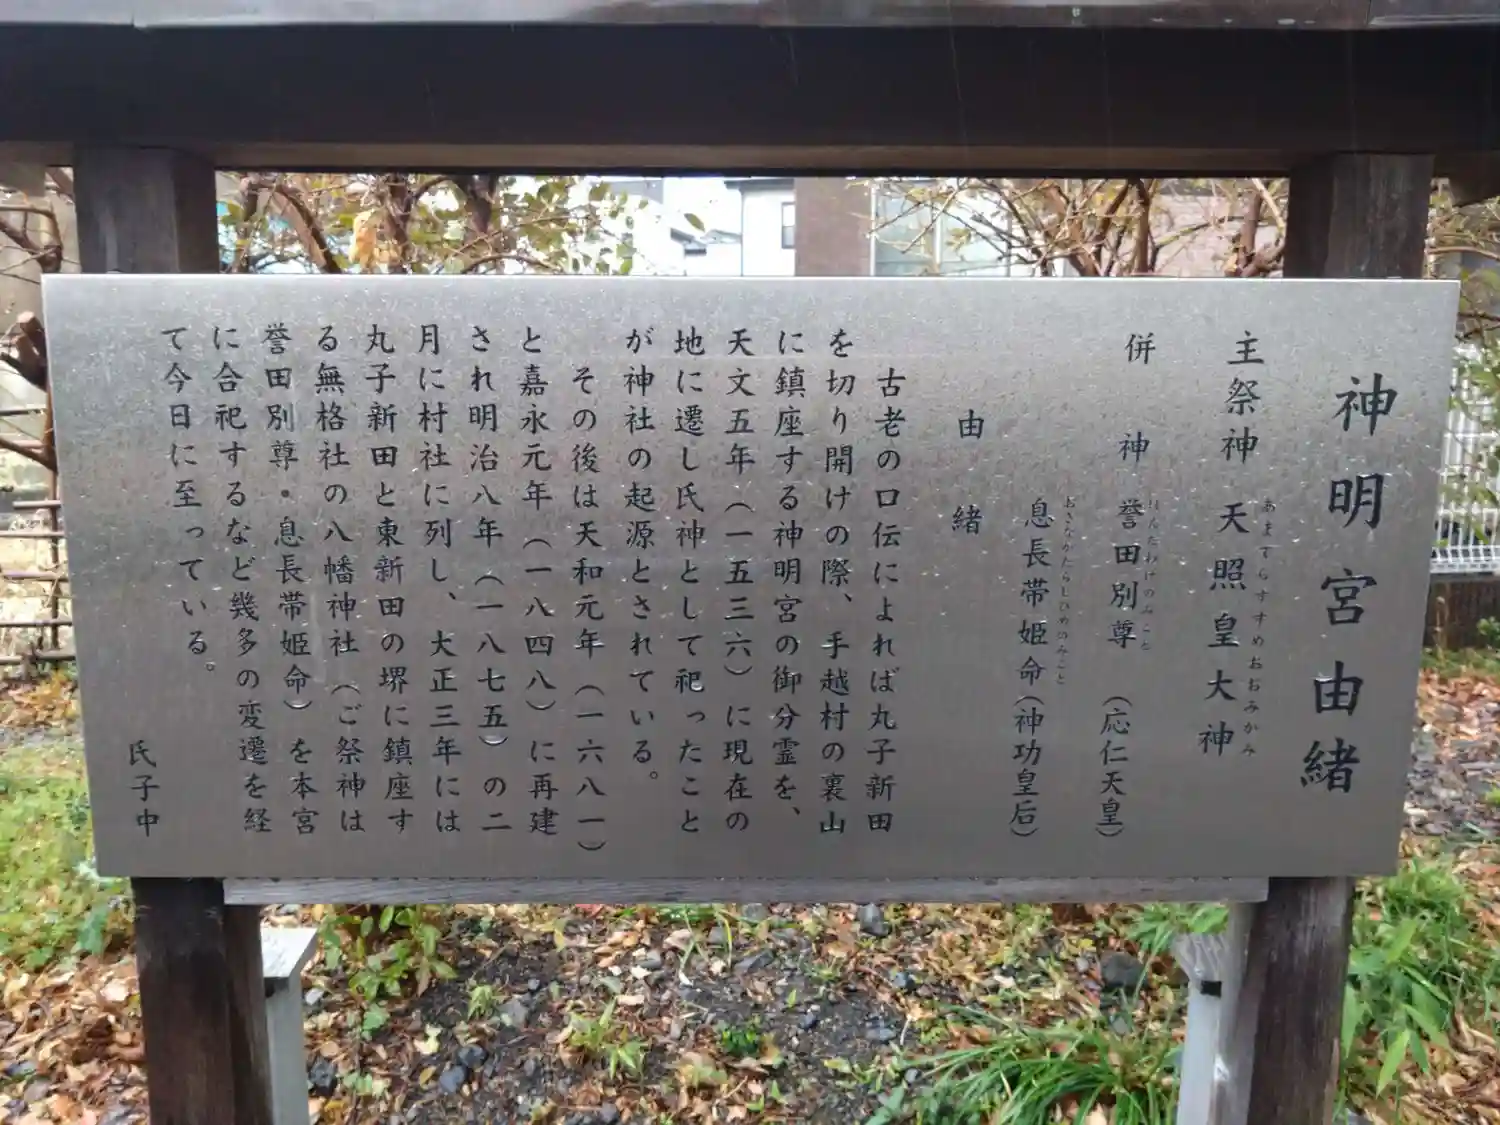 神明宮由緒
主祭神 天照皇大神
あまてらすすめおおみかみ
併神 誉田別尊（応仁天皇）
ほんだわけのみこと
息長帯姫命（神功皇后）
おきながたらしひめのみこと
由緒
古老の口伝によれば丸子新田
を切り開けの際、手越村の裏山
に鎮座する神明宮の御分霊を、
天文五年（一五三六）に現在の
地に遷し氏神として祀ったこと
が神社の起源とされている。
その後は天和元年（一六八一）
と嘉永元年（一八四八）に再建
され明治八年（一八七五）の二
月に村社に列し、大正三年には
丸子新田と東新田の堺に鎮座す
る無格社の八幡神社（ご祭神は
誉田別尊・息長帯姫命）を本宮
に合祀するなど幾多の変遷を経
て今日に至っている。
氏子中